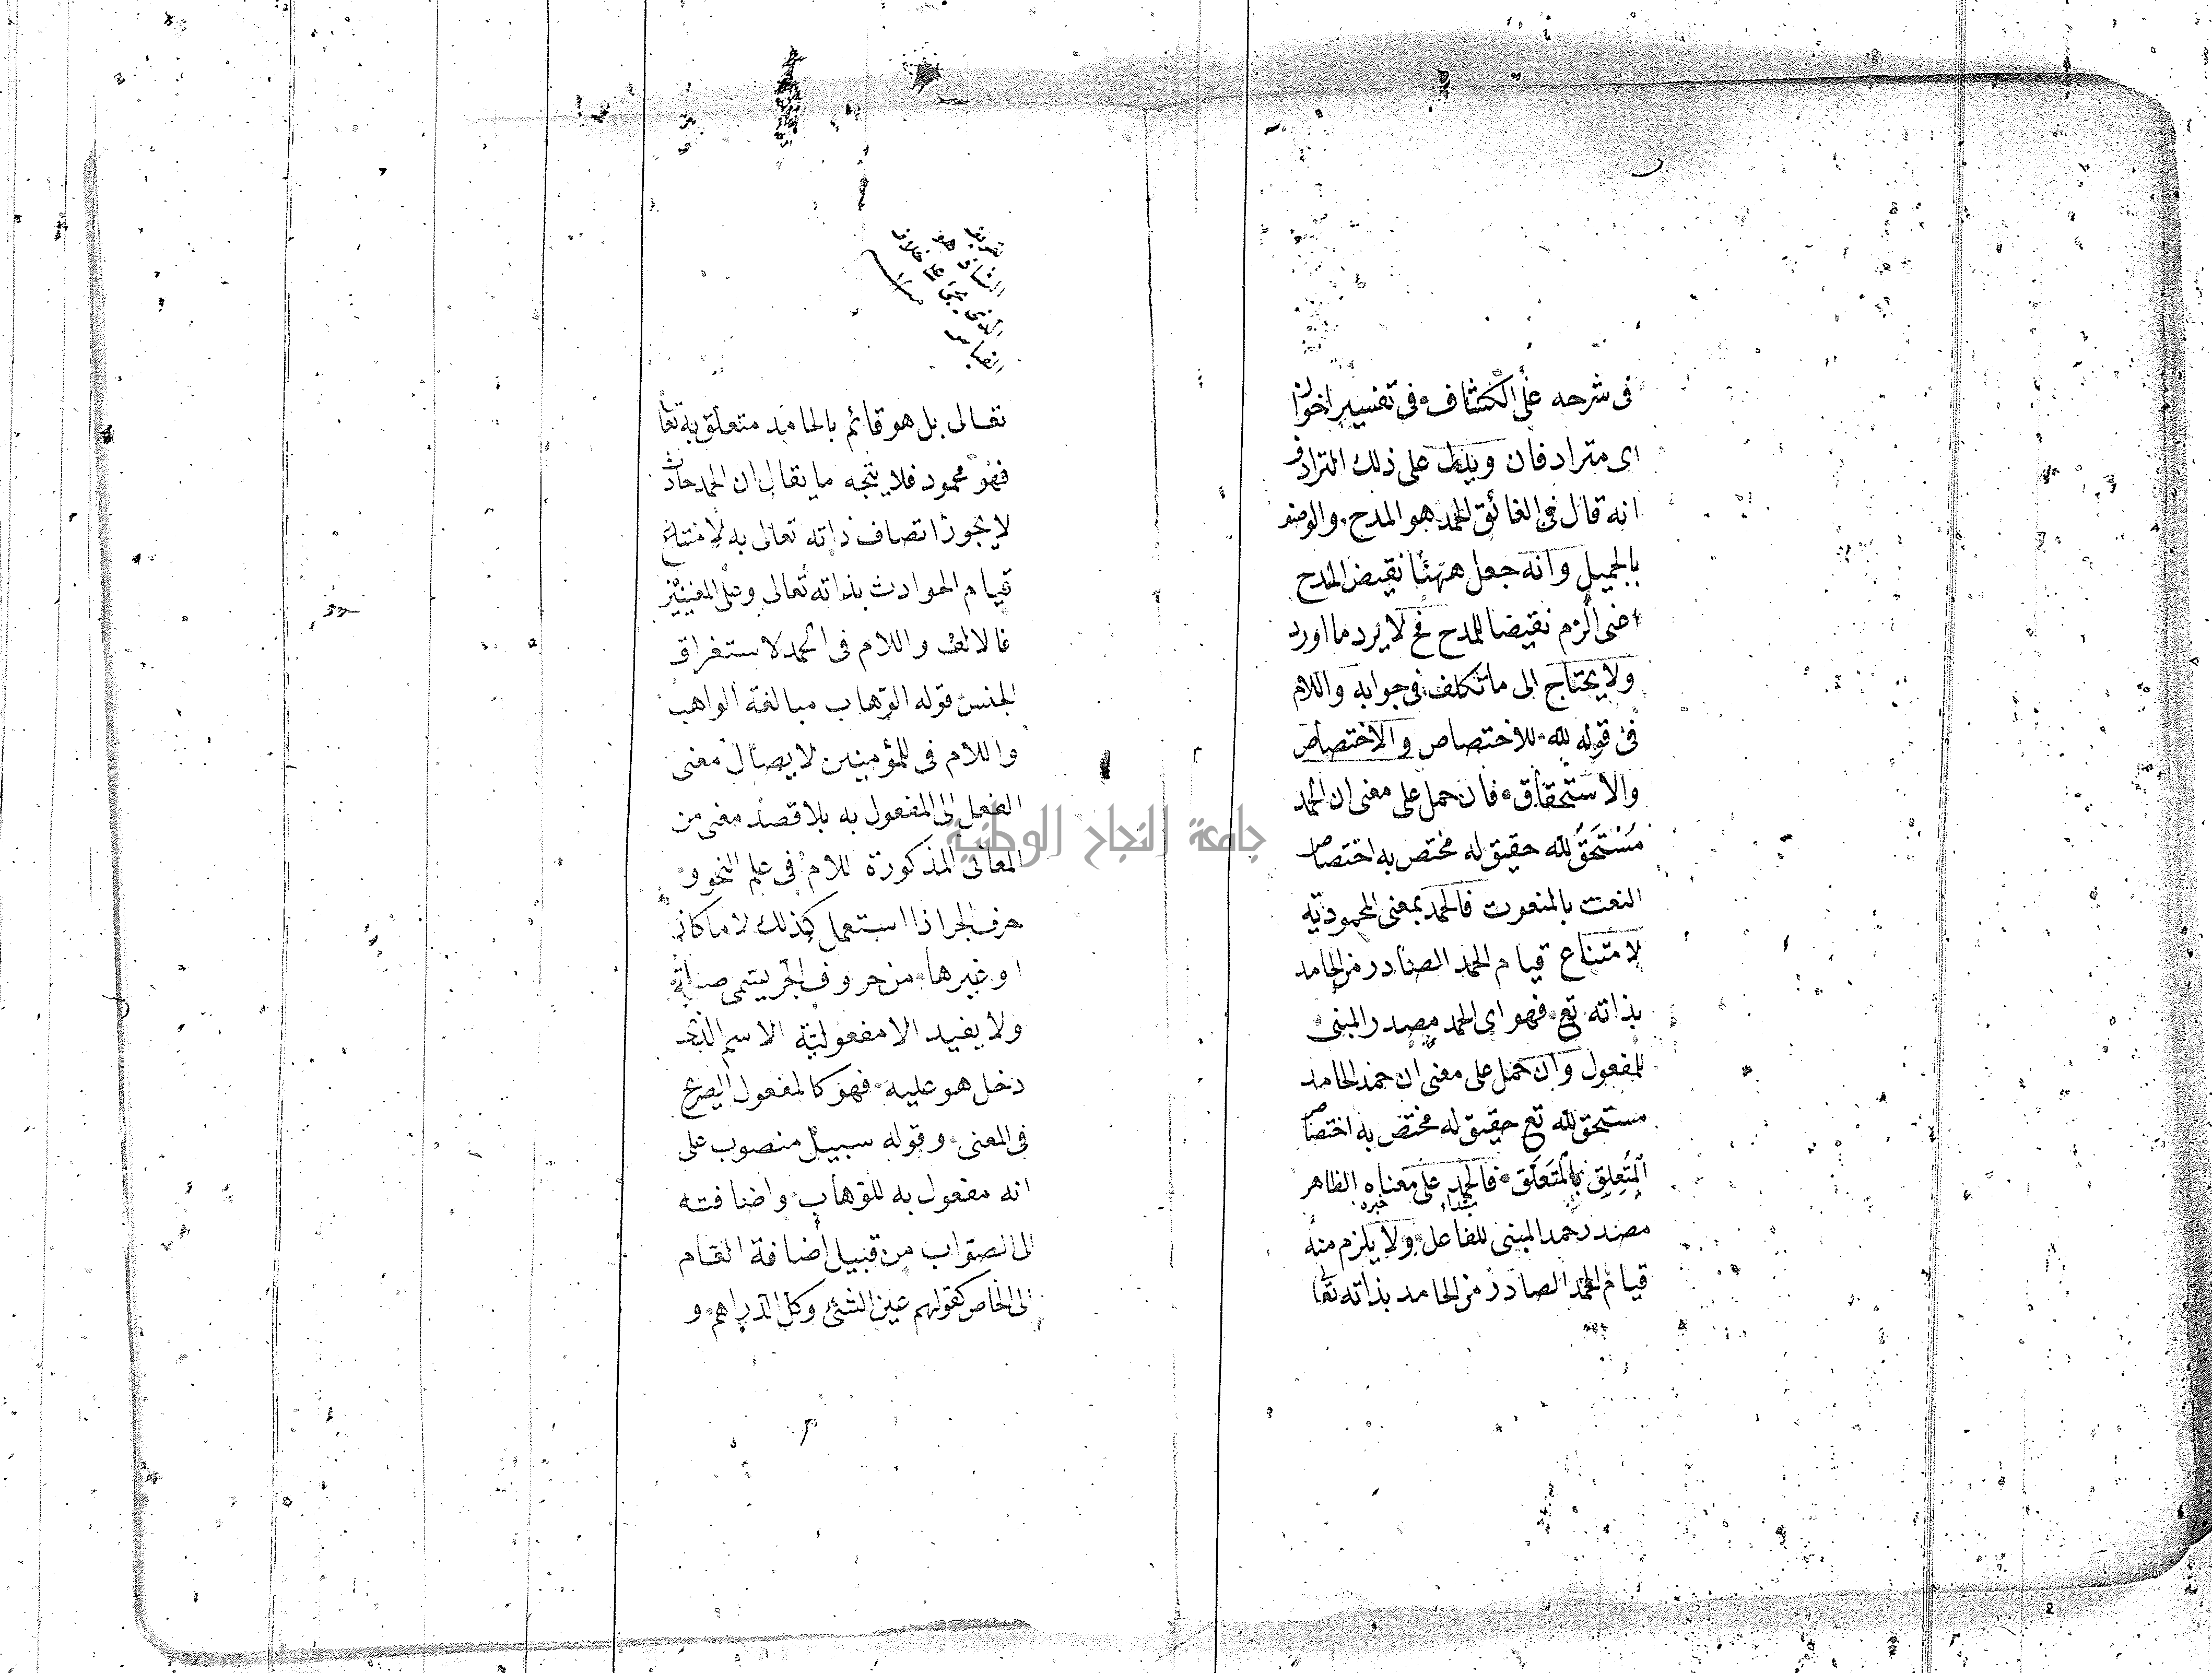 فى شرحه على الكشاف فى تفسير اخوان
اى مترادفان ويدل على ذلك الترادف
انه قال فى الفائق الحمد هو المدح والوصف
بالجميل وانه جعل ههنا نقيض المدح
اعنى الزم نقيضا للمدح فح لا يرد ما اورد
ولا يحتاج الى ما تكلف فى جوابه واللام
فى قوله لله للاختصاص والاختصاص
والاستحقاق فان حمل على معنى ان الحمد
مُسْتَحَقٌ لله حقيق له مختص به اختصاص
النعت بالمنعوت فالحمد بمعنى المحمودية
لامتناع قيام الحمد الصادر من الحامد
بذاته تع فهو اى الحمد مصدر المبنى
للمفعول وان حمل على معنى ان حمد الحامد
مستحق لله تع حقيق له مختص به اختصاص
المتعلِق بالمتعلَق فالحمد على معناه الظاهر
مبتداء خبره
مصدر حمد المبنى للفاعل ولا يلزم منه
قيام الحمد الصادر من الحامد بذاته تعا
تعالى بل هو قائم بالحامد متعلق به تعا
فهو محمود فلا يتجه ما يقال ان الحمد حادث
لا يجوز اتصاف ذاته تعالى به لامتناع
قيام الحوادث بذاته تعالى وعلى المعنيين
فالالف واللام فى الحمد لاستغراق
الجنس قوله الوهاب مبالغة الواهب
واللام فى للمؤمنين لايصال معنى
الفعل الى المفعول به بلا قصد معنى من
المعانى المذكورة للام فى علم النحو و
حرف الجر اذا استعمل كذلك لاما كان
او غيرها من حروف الجر يسمى صلة
ولا يفيد الا مفعولية الاسم الذى
دخل هو عليه فهو كالمفعول الصريح
فى المعنى وقوله سبيل منصوب على
انه مفعول به للوهاب واضافته
الى الصواب من قبيل اضافة العام
الى الخاص كقولهم عين الشئ وكل الدراهم و
جامعة النجاح الوطنية